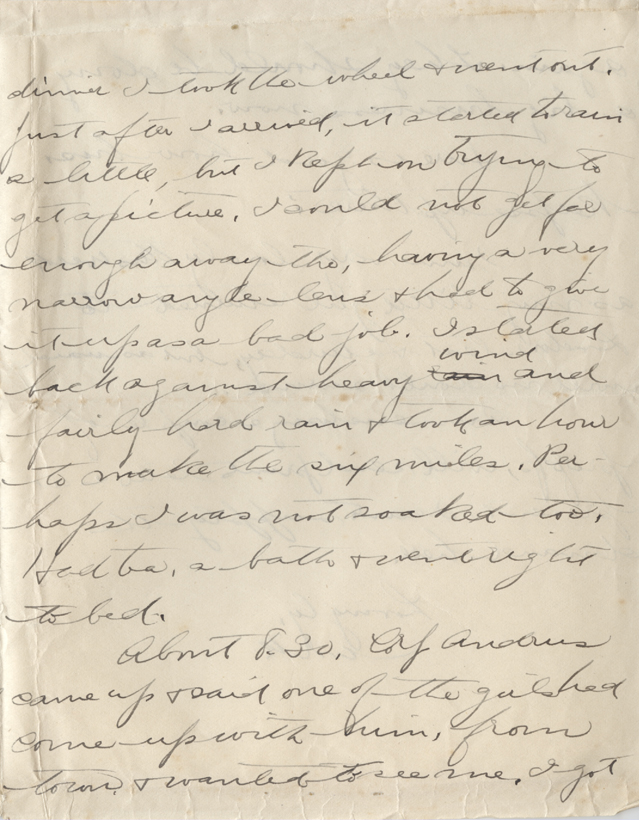 dinner I took the wheel & went out.
Just after I arrived, it started to rain
a little, but I kept on trying to
get a picture. I could not get far
enough away tho, having a very
narrow angle lens & had to give
it up as a bad job. I started
wind
back against heavy rain and
fairly hard rain & took an hour
to make the six miles. Per-
haps I was not soaked too.
Had tea, a bath & went right
to bed.
About 8.30, Andrus
came up & said one of the girls had
come up with him, from
town, & wanted to see me. I got